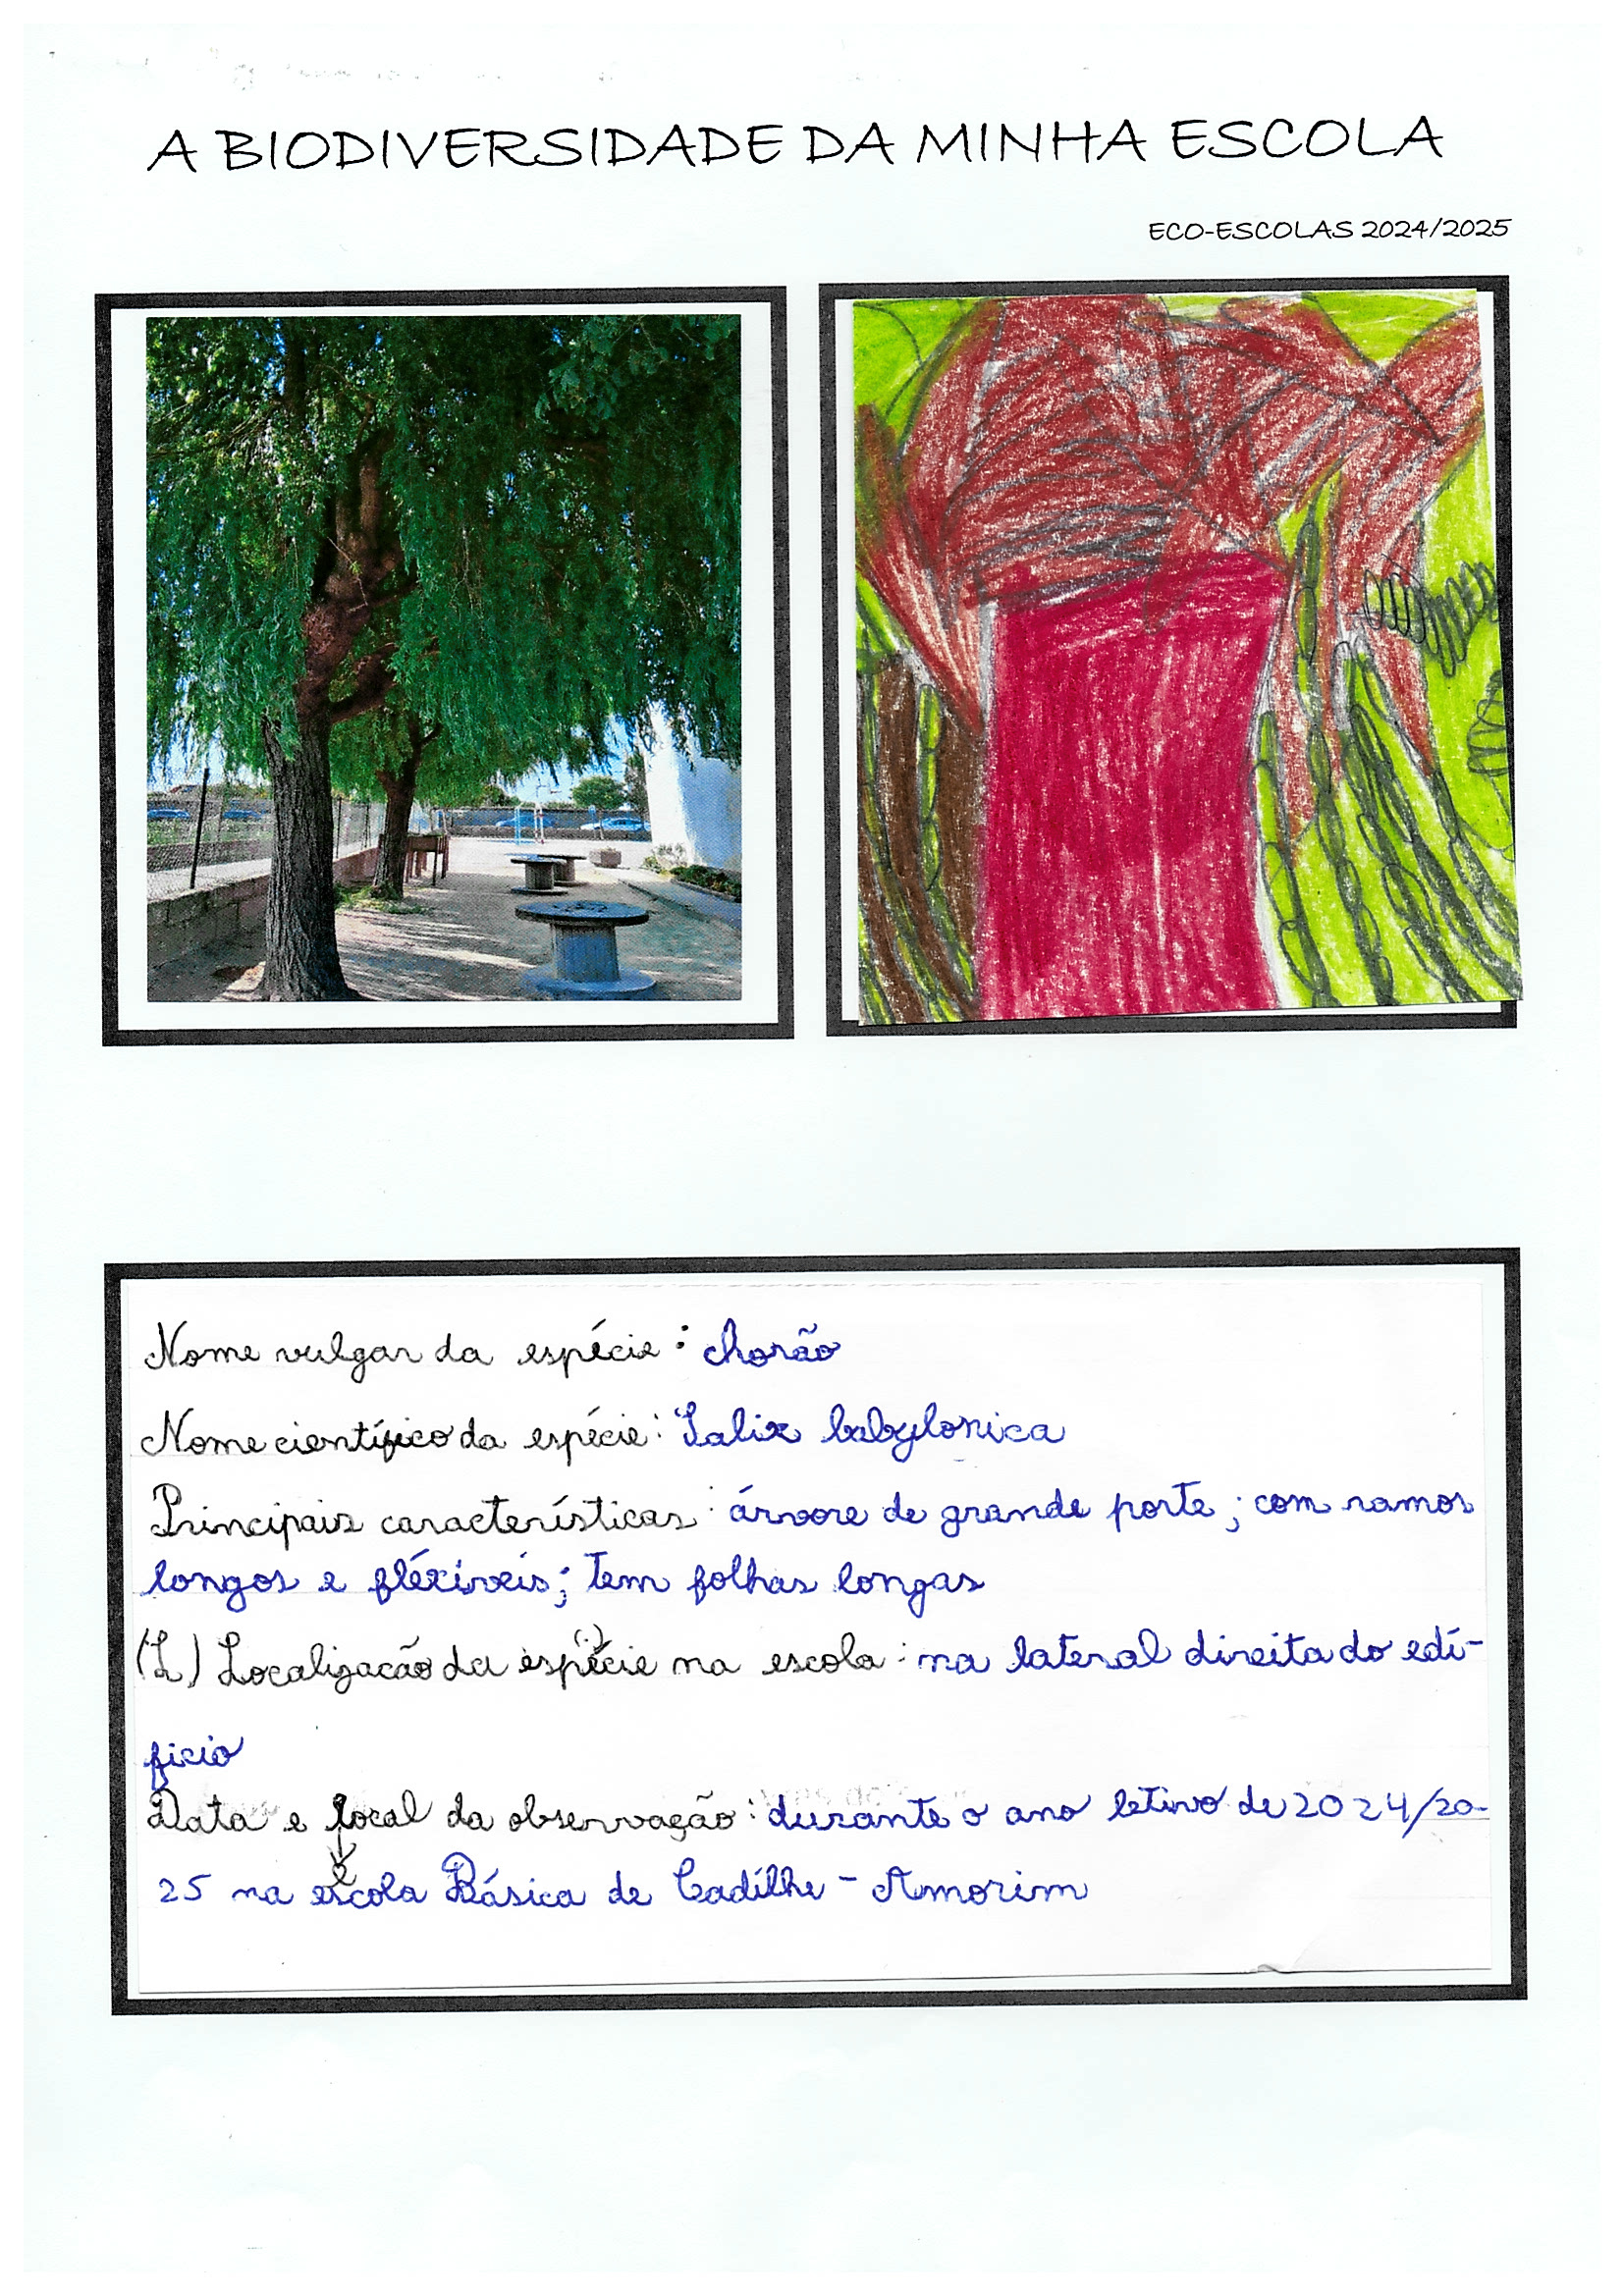 A BIODIVERSIDADE DA MINHA ESCOLA
ECO-ESCOLAS 2024/2025
Nome vulgar da espécie: chorão
Nome científico da espécie: Salix babylonica
Principais características: árvore de grande porte; com ramos
longos e fléxiveis; tem folhas longas
(L) Localização da espécie na escola: na lateral direita do edi-
ficio
Data e local da observação: durante o ano letivo de 2024/20-
25 na escola Básica de Cadilhe - Amorim